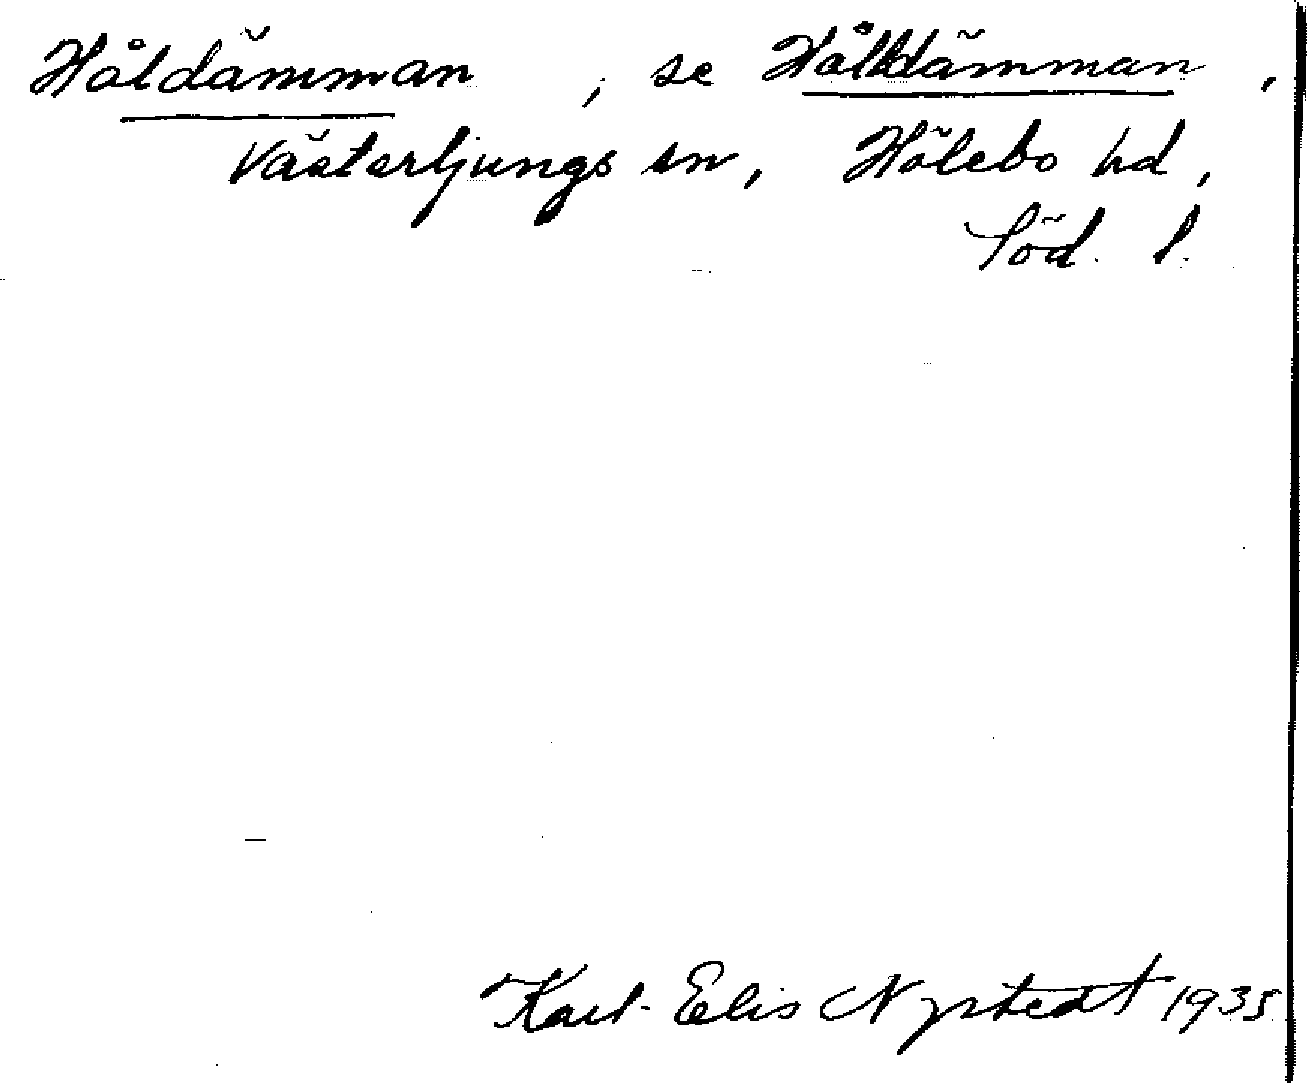 Håldämman , se Hålldämman ,
Västerljungs sn, Hölebo hd,
Söd. l.
Karl-Elis Nystedt 1935